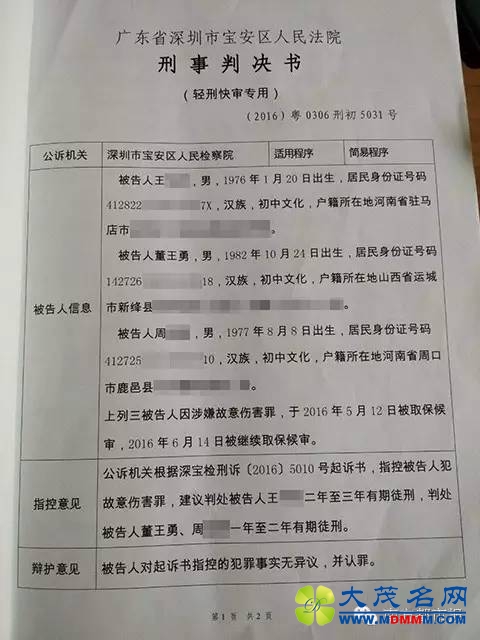 广东省深圳市宝安区人民法院
刑事判决书
（轻刑快审专用）
（2016）粤0306刑初5031号
公诉机关 深圳市宝安区人民检察院 适用程序 简易程序
被告人信息
被告人王 ，男，1976年1月20日出生，居民身份证号码
412822 7X，汉族，初中文化，户籍所在地河南省驻马
店市 。
被告人董王勇，男，1982年10月24日出生，居民身份证号码
142726 18，汉族，初中文化，户籍所在地山西省运城
市新绛县 。
被告人周 ，男，1977年8月8日出生，居民身份证号码
412725 10，汉族，初中文化，户籍所在地河南省周口
市鹿邑县 。
上列三被告人因涉嫌故意伤害罪，于2016年5月12日被取保候
审，2016年6月14日被继续取保候审。
指控意见
公诉机关根据深宝检刑诉〔2016〕5010号起诉书，指控被告人犯
故意伤害罪，建议判处被告人王 二年至三年有期徒刑，判处
被告人董王勇、周 一年至二年有期徒刑。
辩护意见 被告人对起诉书指控的犯罪事实无异议，并认罪。
第1页 共2页
大茂名网
www.MDMMM.com